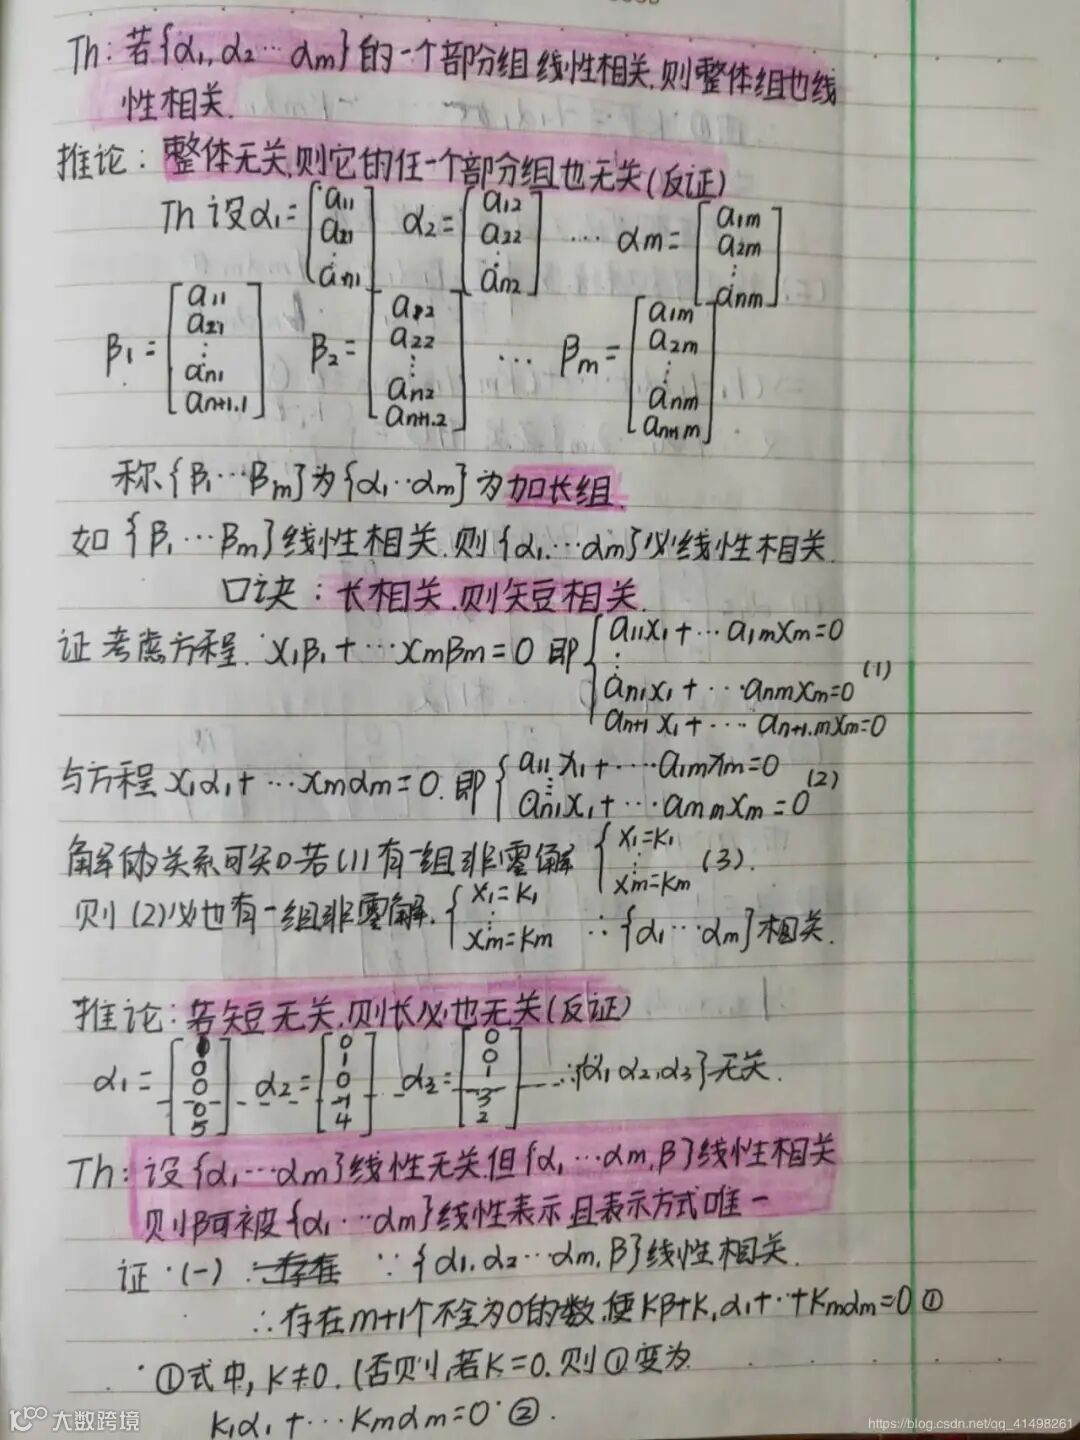 Th: 若{α₁, α₂ … αm}的一个部分组线性相关,则整体组也线
性相关.
推论: 整体无关,则它的任一个部分组也无关(反证)
Th 设α₁=[a₁₁ a₂₁ ⋮ an₁] α₂=[a₁₂ a₂₂ ⋮ an₂] … αm=[a₁m a₂m ⋮ anm]
β₁=[a₁₁ a₂₁ ⋮ an₁ an+1.1] β₂=[a₁₂ a₂₂ ⋮ an₂ an+1.2] … βm=[a₁m a₂m ⋮ anm an+1m]
称{β₁…βm}为{α₁…αm}为加长组.
如{β₁…βm}线性相关.则{α₁…αm}必线性相关.
口诀: 长相关.则短相关.
证 考虑方程. x₁β₁+…xmβm=0 即{a₁₁x₁+…a₁mxm=0
⋮
an₁x₁+…anmxm=0 (1)
an+1x₁+…an+1.mxm=0
与方程x₁α₁+…xmαm=0.即{a₁₁x₁+…a₁mxm=0 (2)
⋮
an₁x₁+…ammxm=0
解的关系可知若(1)有一组非零解{x₁=k₁ ⋮ xm=km (3).
则(2)必也有一组非零解.{x₁=k₁ ⋮ xm=km ∴{α₁…αm}相关.
推论: 若短无关.则长必也无关(反证)
α₁=[1 0 0 0 5] α₂=[0 1 0 -1 4] α₃=[0 0 1 3 2] ∴{α₁α₂,α₃}无关.
Th: 设{α₁…αm}线性无关.但{α₁…αm,β}线性相关
则β可被{α₁…αm}线性表示,且表示方式唯一
证 (一) ∵{α₁,α₂…αm,β}线性相关.
∴存在m+1个不全为0的数,使kβ+k₁α₁+…+kmαm=0 ①
①式中,k≠0.(否则,若k=0.则①变为
k₁α₁+…kmαm=0 ②.
大数跨境
https://blog.csdn.net/qq_41498261